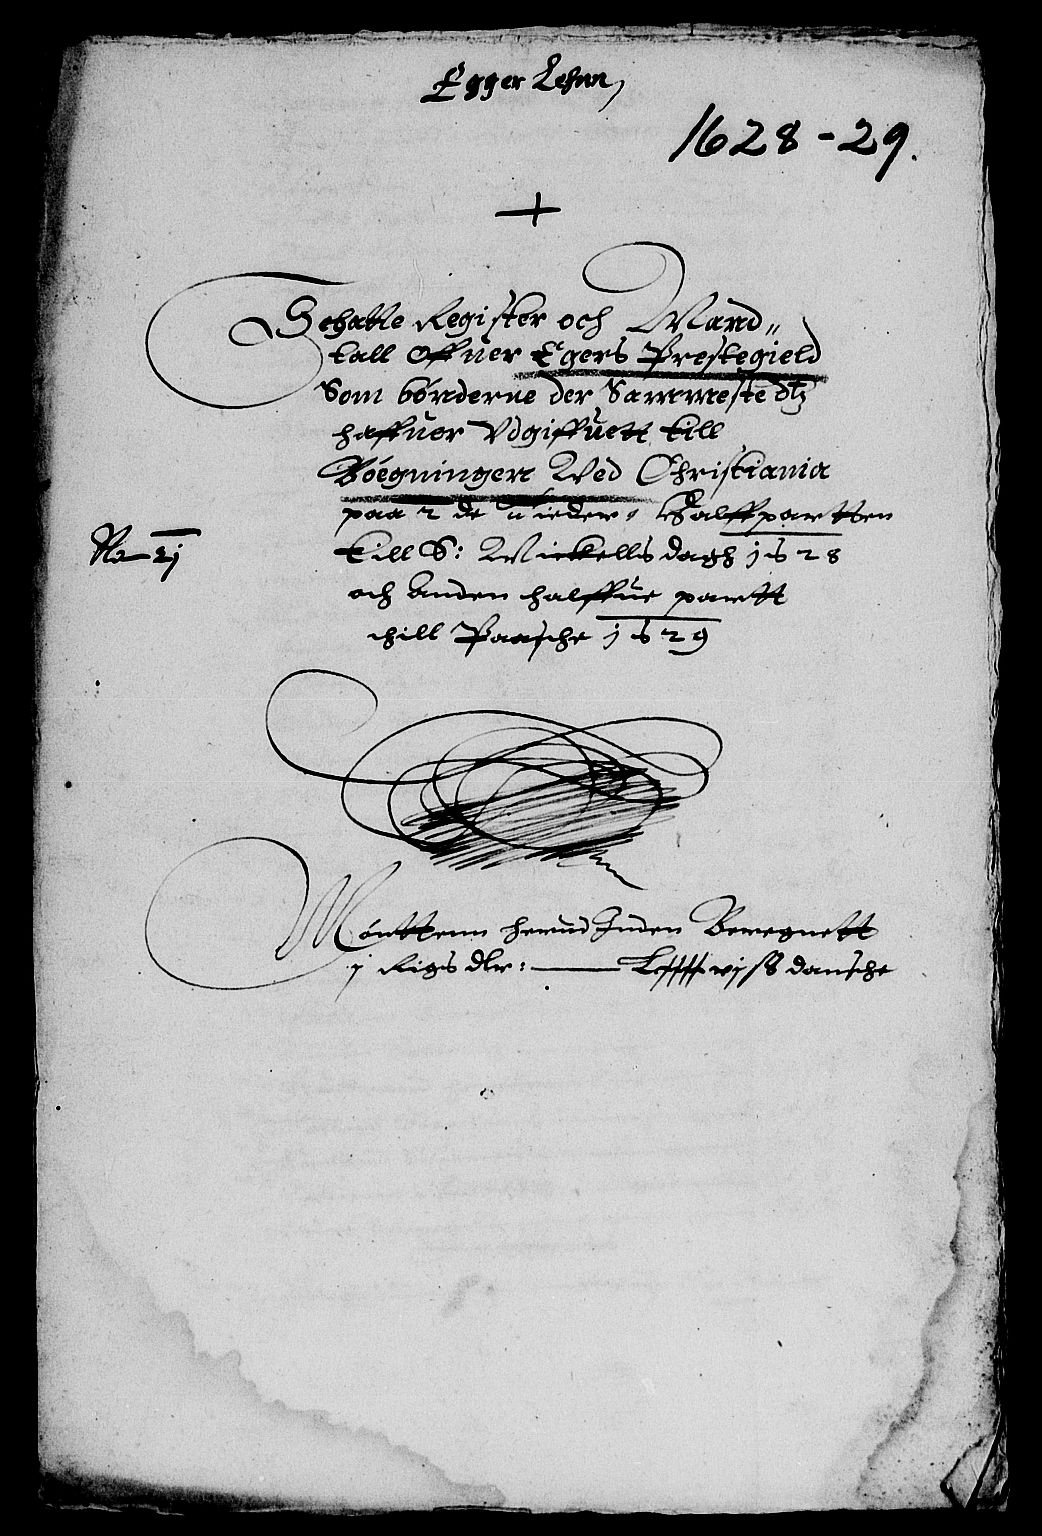 Egger Lehnn,
1628-29.
Schatte Register och Mand„
tall Offuer Egers Prestegield
Som bønderne der Sammeste dtz
haffuer Vdgiffuett till
Bøegningen Ved Christiania
paa 2 de Halffpartten
No 21
till S: Mickells dagh 1628
och Anden halffue partt
thill Paasche 1629
Mønttenn herud Inden Beregnett
j Rigs dlr: vj ß dansche